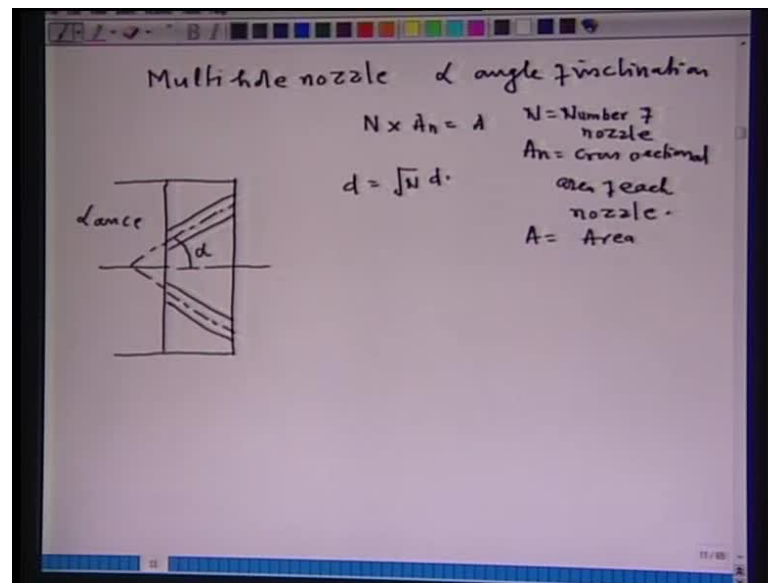 Multi hole nozzle α angle of inclination
N × An = A
N = Number of
nozzle
An = cross sectional
area of each
nozzle.
A = Area
d = √N d.
Lance
α
11/65
11